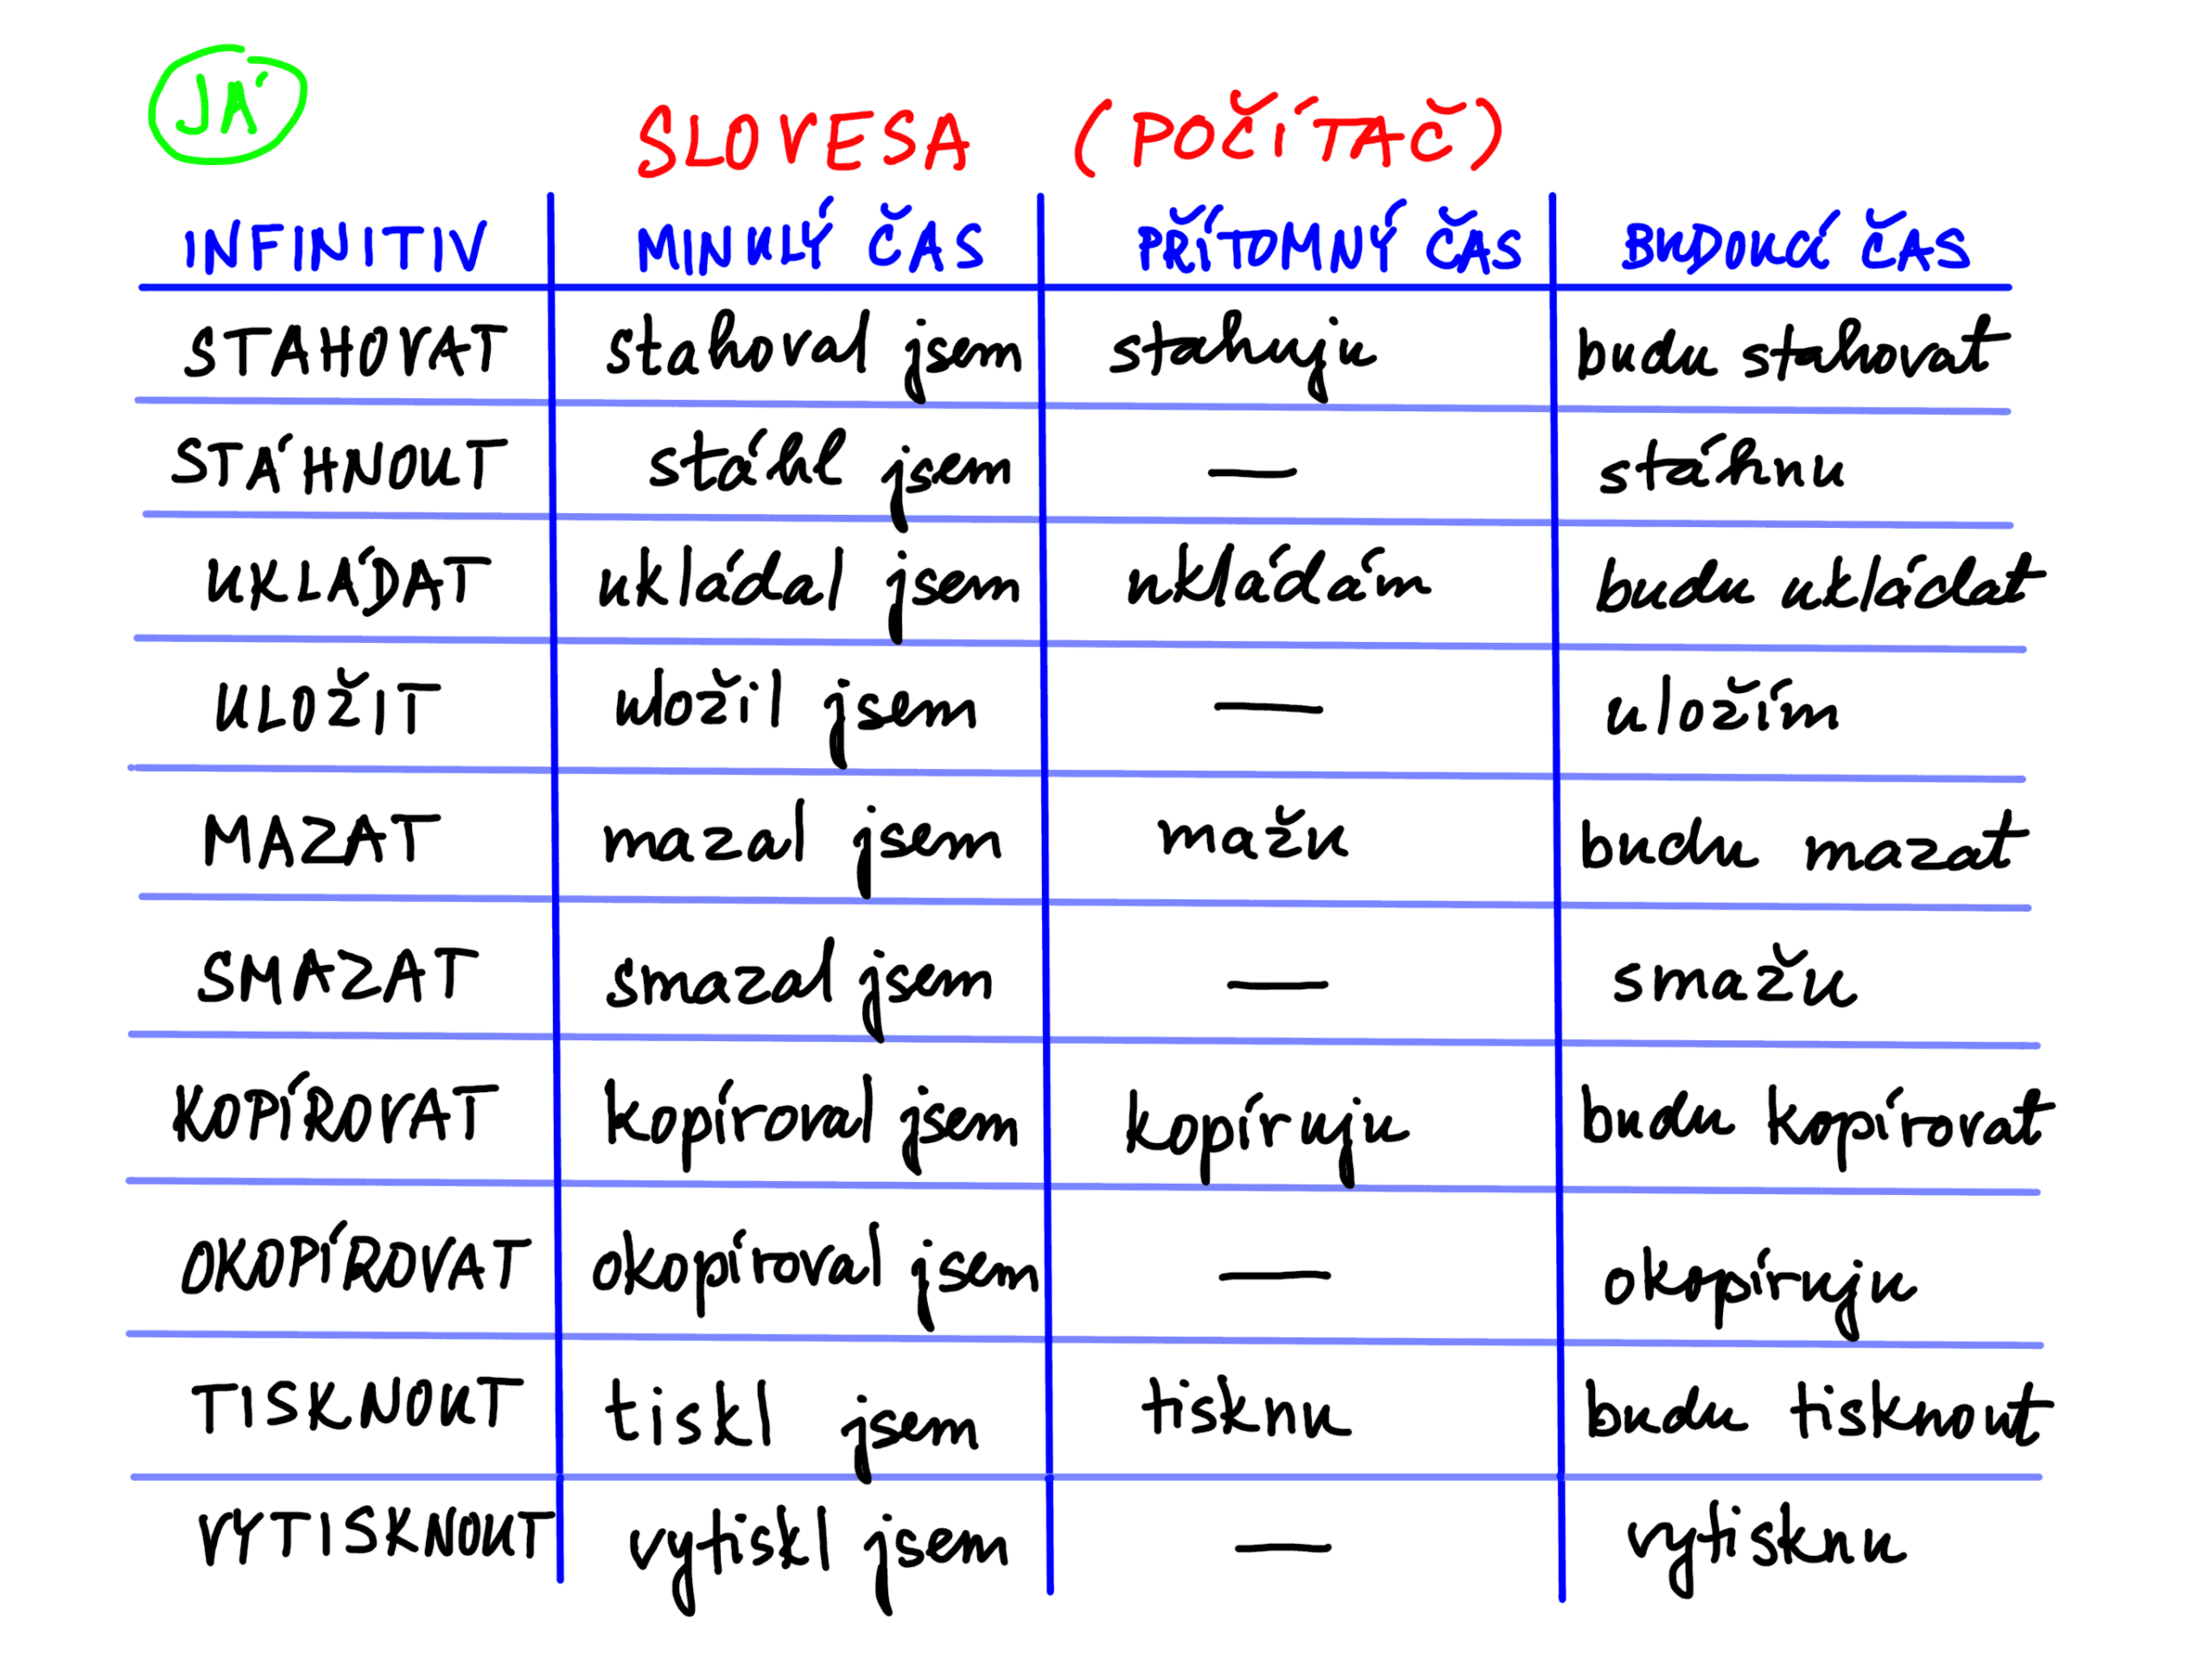 JÁ
SLOVESA (POČÍTAČ)
INFINITIV MINULÝ ČAS PŘÍTOMNÝ ČAS BUDOUCÍ ČAS
STAHOVAT stahoval jsem stahuju budu stahovat
STÁHNOUT stáhl jsem — stáhnu
UKLÁDAT ukládal jsem ukládám budu ukládat
ULOŽIT uložil jsem — uložím
MAZAT mazal jsem mažu budu mazat
SMAZAT smazal jsem — smažu
KOPÍROVAT kopíroval jsem kopíruju budu kopírovat
OKOPÍROVAT okopíroval jsem — okopíruju
TISKNOUT tiskl jsem tisknu budu tisknout
VYTISKNOUT vytiskl jsem — vytisknu